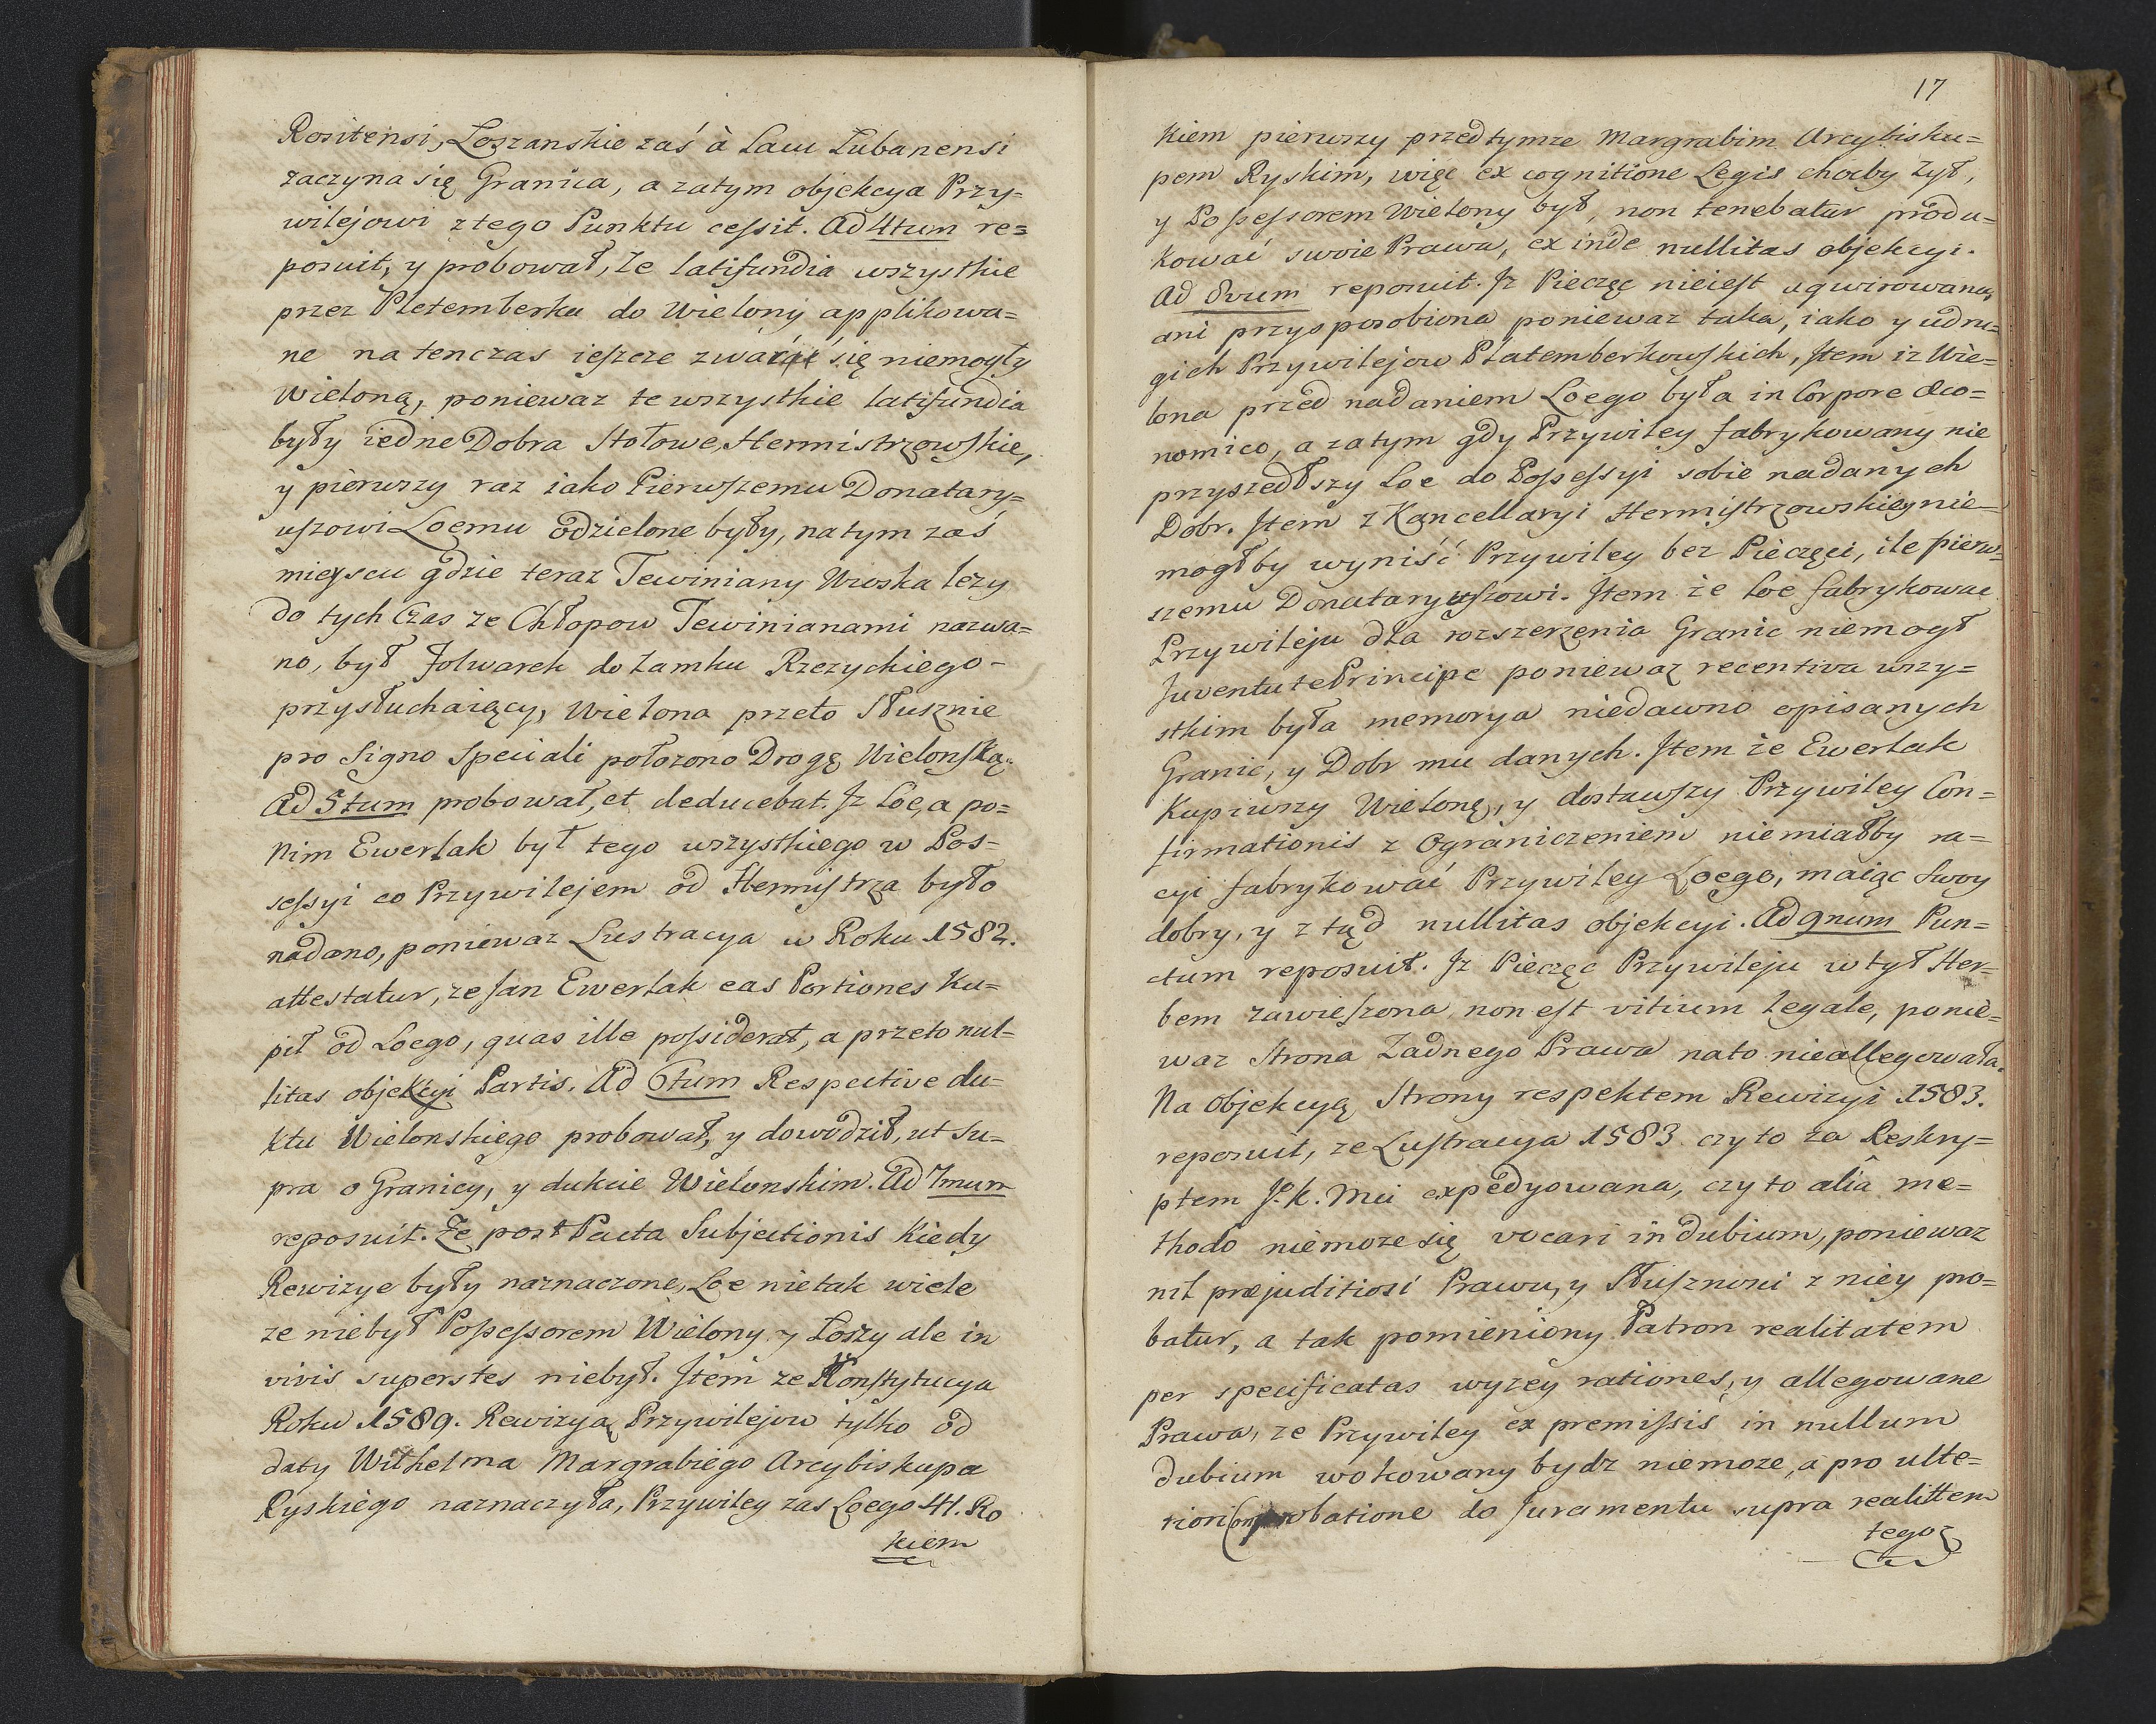 Rositensi, Loszanskie zaś à Lacu Lubanensi
zaczyna się Granica, a zatym objekcya Przy=
wilejowi z tego Punktu cessit. Ad 4tum re=
posuit, y probował, Ze latifundia wszystkie
przez Pletemberka do Wielony applikowa=
ne na tenczas ieszcze zwać się niemogły
Wieloną, poniewaz te wszystkie latifundia
były iedne Dobra Stołowe Hermistrzowskie,
y pierwszy raz iako Pierwszemu Donatary=
uszowi Loemu odzielone były, na tym zaś
mieyscu gdzie teraz Tewiniany Wioska lezy
do tych czas ze Chłopow Tewinianami nazwa=
no, był Folwarek do Zamku Rzezyckiego -
przysłuchaiący, Wielona przeto Słusznie
pro Signo Speciali połozono Drogę Wielonską.
Ad 5tum probował, et deducebat. Iz Loe, a po=
nim Ewerlak był tego wszystkiego w Pos=
sessyi co Przywilejem od Hermistrza było
nadano, poniewaz Lustracya w Roku 1582.
attestatur, ze Jan Ewerlak eas Portiones Ku=
pił od Loego, quas ille possiderat, a przeto nul=
litas objekcyi Partis. Ad 6tum Respective du=
ktu Wielonskiego probował, y dowodził, ut su=
pra o Granicy, y dukcie Wielonskim. Ad 7mum
reposuit. Ze post Pacta Subjectionis Kiedy
Rewizye były naznaczone, Loe nietak wiele
ze niebył Possessorem Wielony y Loszy ale in
vivis superstes niebył. Item ze Konstytucya
Roku 1589. Rewizyą Przywilejow tylko od
daty Wilhelma Margrabiego Arcybiskupa
Ryskiego naznaczyła, Przywiley zas Loego 41. Ro
kiem
17
Kiem pierwszy przed tymze Margrabim Arcybisku=
pem Ryskim, więc ex cognitione Legis choćby Zył,
y Possessorem Wielony był, non tenebatur produ=
kować swoie Prawa, ex inde nullitas objekcyi.
Ad 8vum reposuit. Iz Pieczęc nieiest aqwirowana,
ani przysposobiona poniewaz taka, iako y u dru=
gich Przywilejow Platemberkowskich, Item iz Wie=
lona przed nadaniem Loego była in Corpore Œco=
nomico, a zatym gdy Przywiley fabrykowany nie
przyszedłszy Loe do Possessyi sobie nadanych
Dobr. Item z Kancellaryi Hermistrzowskiey nie=
mogłby wyniść Przywiley bez Pieczęci, ile pierw=
szemu Donataryuszowi. Item że Loe fabrykować
Przywileju dla rozszerzenia Granic niemogł
Juventute Principe poniewaz recentiva wszy=
stkim była memorya niedawno opisanych
Granic, y Dobr mu danych. Item że Ewerlak
Kupiwszy Wielonę, y dostawszy Przywiley Con=
firmationis z Ograniczeniem niemiałby ra=
cyi fabrykować Przywiley Loego, maiąc Swoy
dobry, y ztąd nullitas objekcyi. Ad 9num Pun=
ctum reposuit. Iz Pieczęc Przywileju w tył Her=
bem zawieszona, non est vitium legale, ponie=
waz Strona Zadnego Prawa nato nieallegowała.
Na Objekcyą Strony respektem Rewizyi 1583.
reposuit, ze Lustracya 1583 czy to za Reskry=
ptem J. K. Mci expedyowana, czy to aliâ me=
thodo niemoze się vocari in dubium, poniewaz
nil præjuditiosi Prawu, y Słusznosci z niey pro=
batur, a tak pomieniony Patron realitatem
per specificatas wyzey rationes, y allegowane
Prawa, ze Przywiley ex premissis in nullum
dubium wokowany bydz niemoze, a pro ulte=
riori Comprobatione do Juramentu supra realittem
tegoz